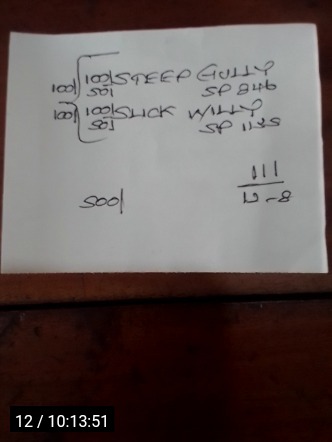 100/ 100/ STEEP GULLY
50/ SP 846
100/ 100/ SLICK WILLY
50/ SP 1135
500/
111
12-8
12 / 10:13:51